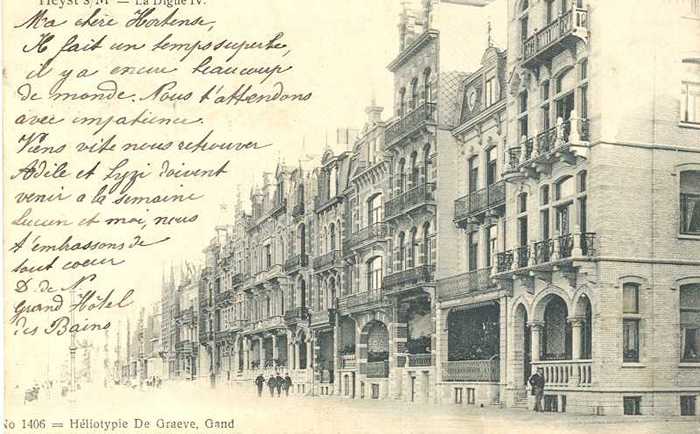 Heyst s/M — La Digue IV.
Ma chère Hortense,
Il fait un temps superbe,
il y a encore beaucoup
de monde. Nous t'attendons
avec impatience.
Viens vite nous retrouver
Adèle et Lyzi doivent
venir a la semaine
Lucien et moi, nous
t'embrassons de
tout coeur
D. de N
Grand Hôtel
des Bains
No 1406 = Héliotypie De Graeve, Gand